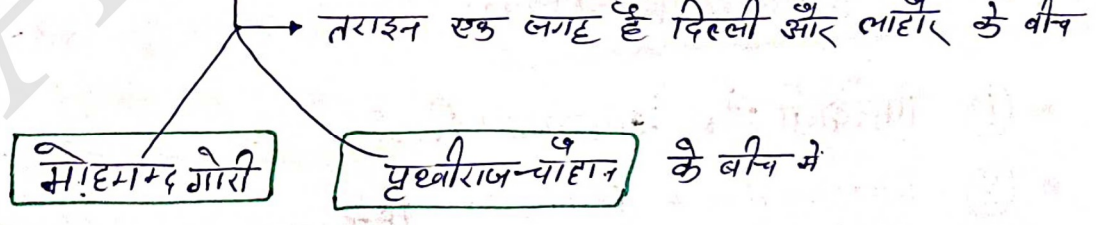 तराइन एक जगह है दिल्ली और लाहौर के बीच
मोहम्मद गोरी पृथ्वीराज चौहान के बीच में